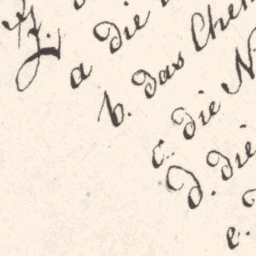 a die
b. das Chem
c. die N
d. die
e.